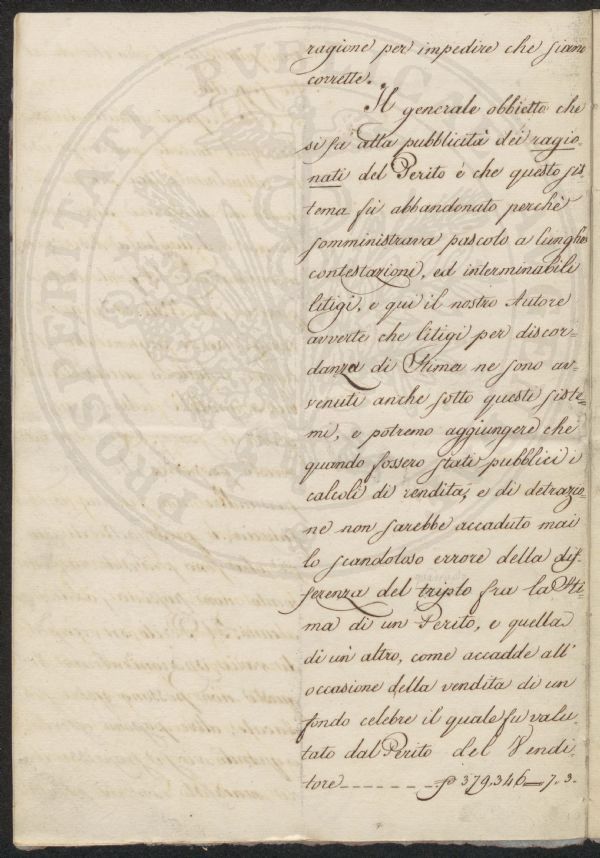 ragione per impedire che siano
corrette.
Il generale obbietto che
si fa alla pubblicità dei ragio-
nati del Perito è che questo sis-
tema fù abbandonato perchè
somministrava pascolo a lunghe
contestazioni, ed interminabili
litigi, e qui il nostro Autore
avverte che litigi per discor-
danza di Stima ne sono av-
venuti anche sotto questi siste-
mi, e potremo aggiungere che
quando fossero stati pubblici i
calcoli di rendita, e di detrazio-
ne non sarebbe accaduto mai
lo scandoloso errore della dif-
ferenza del triplo fra la Sti-
ma di un Perito, e quella
di un altro, come accadde all'
occasione della vendita di un
fondo celebre il quale fu valu-
tato dal Perito del Vendi-
tore 379.346 = 7. 3.
PROSPERITATI PVBLICAE